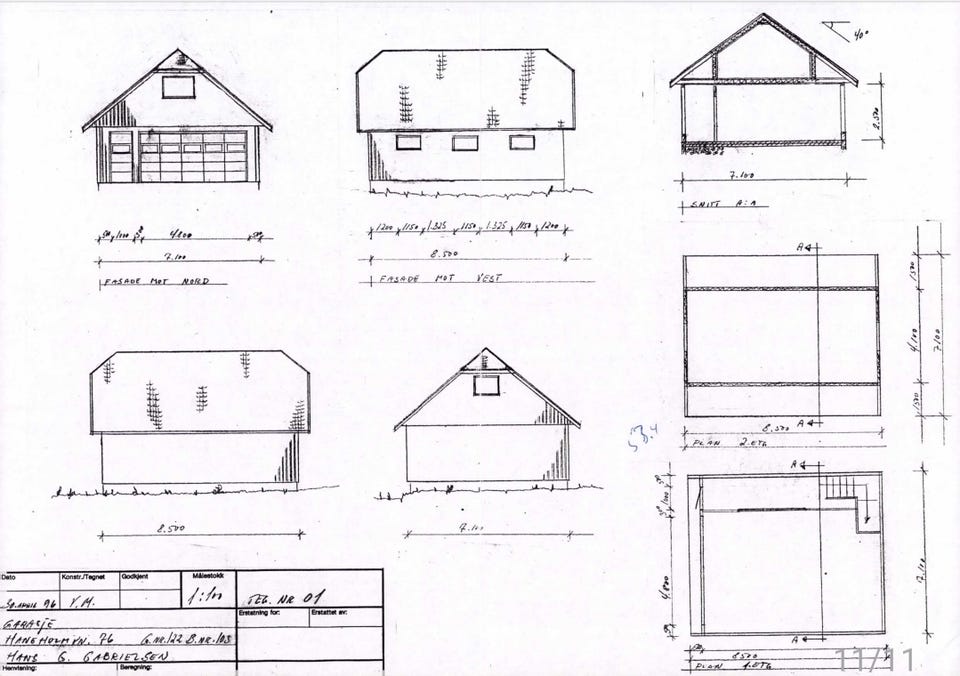 40°
2.500
7.100
SNITT A:A
4800
7.100
FASADE MOT NORD
1200 1150 1.325 1150 1.325 1150 1200
8.500
FASADE MOT VEST
A
1500
4100
7100
1500
8.500
A
PLAN 2.ETG
53.4
8.500
7.100
A
1000
4.800
7.100
A
8500
PLAN 1.ETG
11/11
Dato
Konstr./Tegnet
Godkjent
Målestokk
30.APRIL 96
V.M.
1:100
TEG. NR 01
Erstatning for:
Erstattet av:
GARASJE
HANEHOLMVN. 76 G.NR.122 B.NR.103
HANS G. GABRIELSEN
Henvisning:
Beregning: